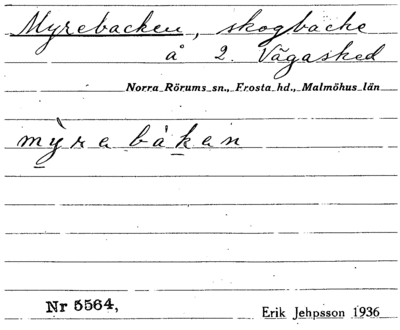 Myrebacken, skogbacke
å 2. Vägasked
Norra Rörums sn., Frosta hd., Malmöhus län
mỳrabàkan
Nr 5564,
Erik Jehpsson 1936